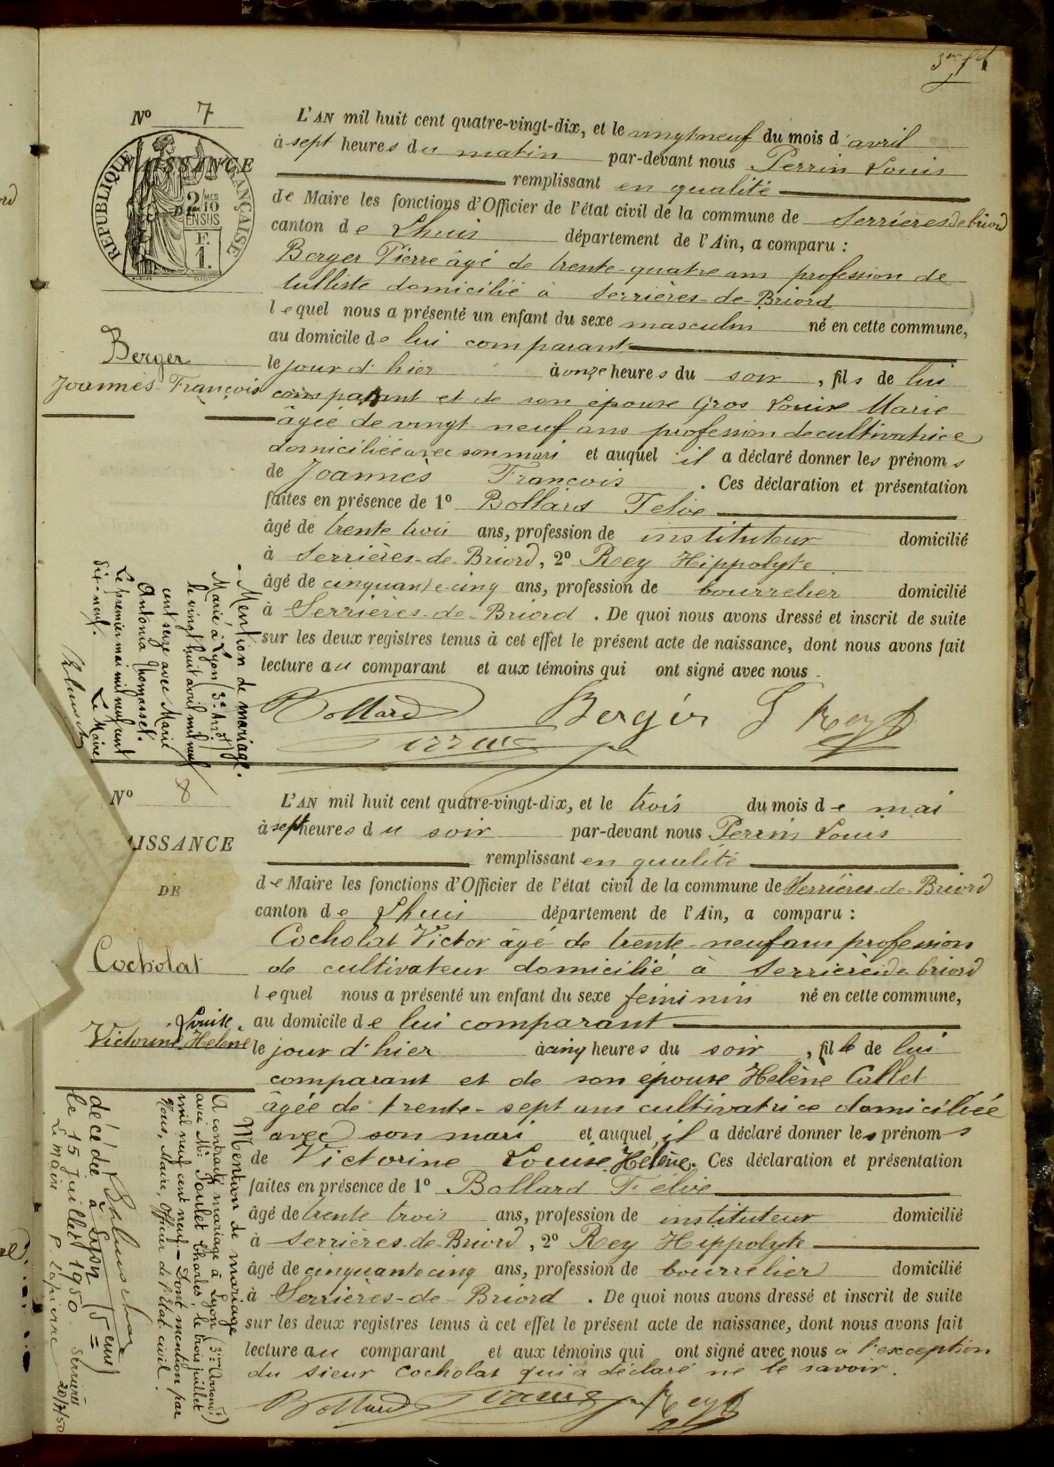 3me f et
Nº 7
NAISSANCE
RÉPUBLIQUE FRANÇAISE
2/10 EN SUS
F.
1.
Berger
Joannès François
L'AN mil huit cent quatre-vingt-dix, et le vingt neuf du mois d'avril
à sept heures du matin par-devant nous Perrin Louis
remplissant en qualité
de Maire les fonctions d'Officier de l'état civil de la commune de Serrières de briord
canton de Lhuis département de l'Ain, a comparu :
Berger Pierre âgé de trente-quatre ans profession de
tulliste domicilié à Serrières-de-Briord
lequel nous a présenté un enfant du sexe masculin né en cette commune,
au domicile de lui comparant
le jour d'hier à onze heures du soir, fils de lui
comparant et de son épouse Gros Louise Marie
âgée de vingt neuf ans profession de cultivatrice
domiciliée avec son mari et auquel il a déclaré donner les prénoms
de Joannès François. Ces déclaration et présentation
faites en présence de 1º Bollard Félix
âgé de trente trois ans, profession de instituteur domicilié
à Serrières-de-Briord, 2º Rey Hippolyte
âgé de cinquante cinq ans, profession de bourrelier domicilié
à Serrières-de-Briord. De quoi nous avons dressé et inscrit de suite
sur les deux registres tenus à cet effet le présent acte de naissance, dont nous avons fait
lecture au comparant et aux témoins qui ont signé avec nous.
Bollard Berger Rey H
Perrin
Mention de mariage.
Marié à Lyon (3e Arrdt)
le vingt huit avril mil neuf
cent seize avec Marie
Antonia Thomasset.
Le premier mai mil neuf cent
dix-neuf.
Le Maire
Nº 8
AISSANCE
DE
Cocholat
Louise
Victorine Helène
L'AN mil huit cent quatre-vingt-dix, et le trois du mois de mai
à sept heures du soir par-devant nous Perrin Louis
remplissant en qualité
de Maire les fonctions d'Officier de l'état civil de la commune de Serrières-de-Briord
canton de Lhuis département de l'Ain, a comparu :
Cocholat Victor âgé de trente-neuf ans profession
de cultivateur domicilié à Serrières de briord
lequel nous a présenté un enfant du sexe féminin né en cette commune,
au domicile de lui comparant
le jour d'hier à cinq heures du soir, fille de lui
comparant et de son épouse Helène Callet
âgée de trente-sept ans cultivatrice domiciliée
avec son mari et auquel il a déclaré donner les prénoms
de Victorine Louise Helène. Ces déclaration et présentation
faites en présence de 1º Bollard Félix
âgé de trente trois ans, profession de instituteur domicilié
à Serrières-de-Briord, 2º Rey Hippolyte
âgé de cinquante cinq ans, profession de bourrelier domicilié
à Serrières-de-Briord. De quoi nous avons dressé et inscrit de suite
sur les deux registres tenus à cet effet le présent acte de naissance, dont nous avons fait
lecture au comparant et aux témoins qui ont signé avec nous à l'exception
du sieur Cocholat qui a déclaré ne le savoir.
Bollard Perrin Rey H
Mention de mariage
A contracté mariage à Lyon (3me Arrondt)
avec Mr. Poulet Charles, le trois juillet
mil neuf cent neuf = Dont mention par
Nous, Maire, Officier de l'état civil.
décédée à Lyon (5eme)
le 15 juillet 1950. Serrières
Le maire 20/7/50